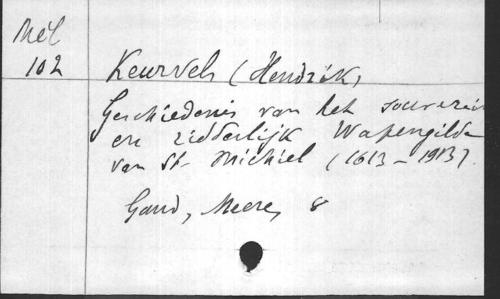 Mél
102
Keurvels (Hendrik)
Geschiedenis van het souverein
en ridderlijk Wapengilde
van St Michiel (1613-1913).
Gand, Meere, 8